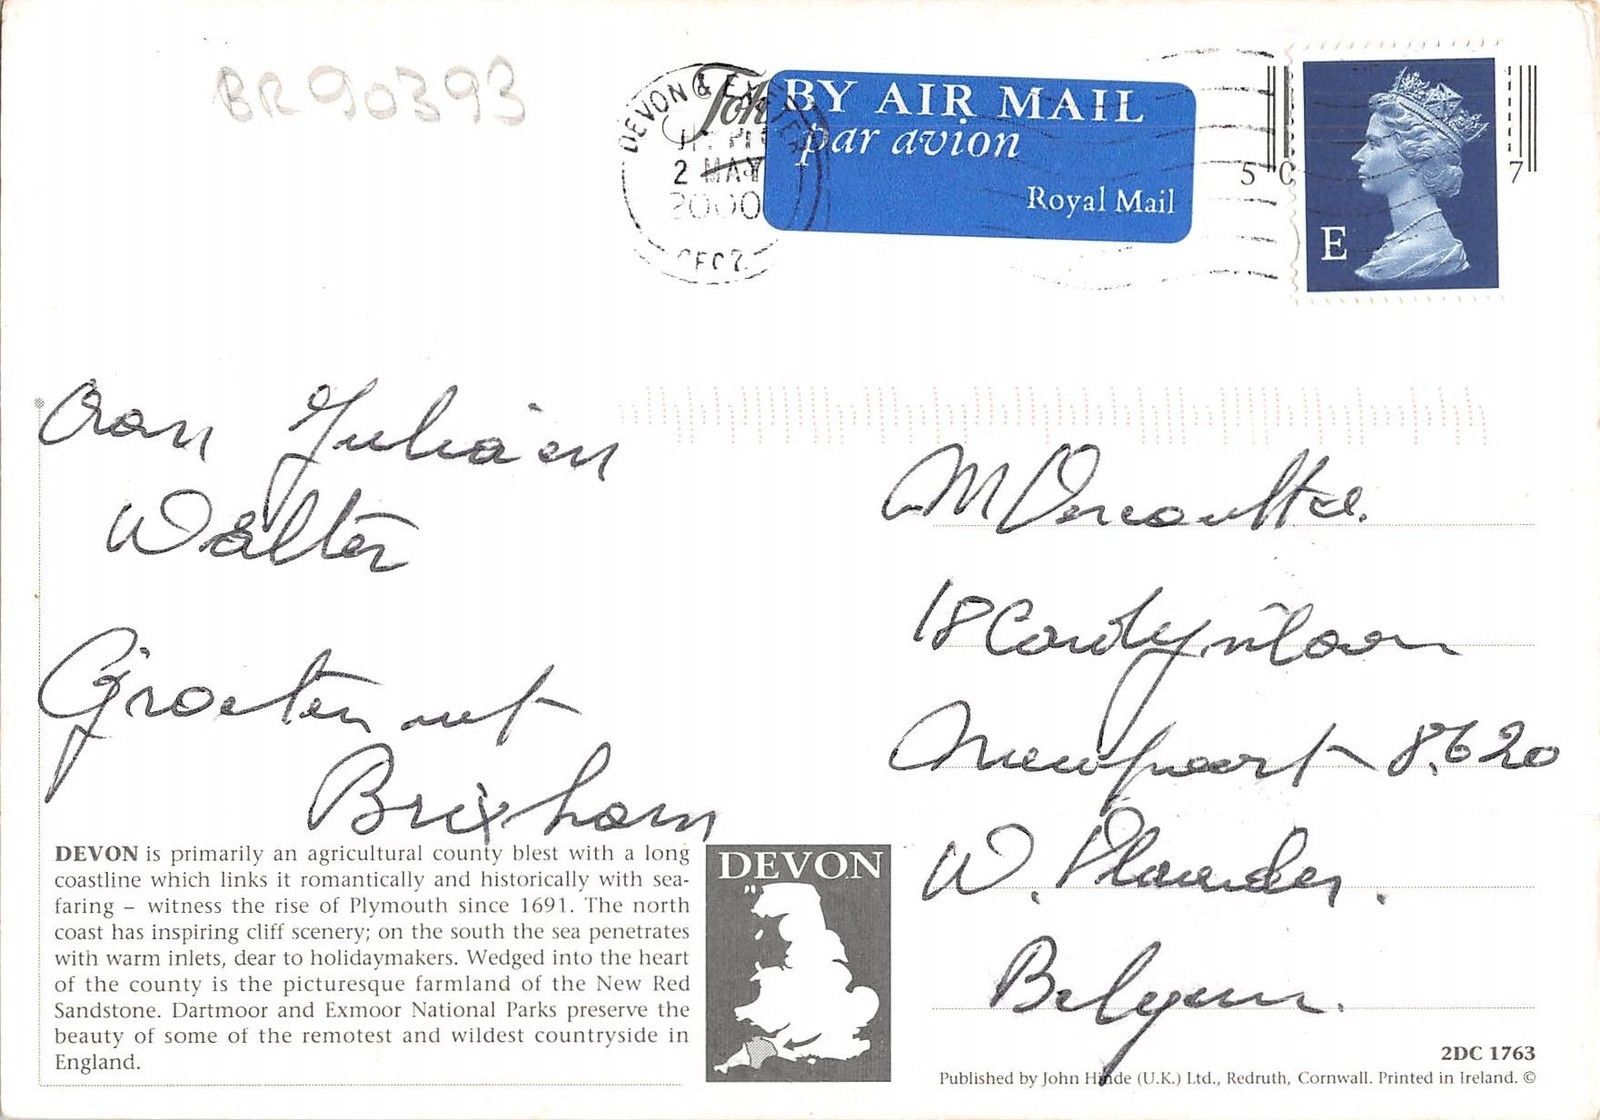 BR90393
DEVON & EXETER
2 MAY
2000
John
BY AIR MAIL
par avion
Royal Mail
5 0 7
E
Julia en
Walter
Groeten uit
Brixham
M Vercoutte.
18
Nieuwpoort 8620
W. Vlaanderen.
Belgium.
DEVON is primarily an agricultural county blest with a long
coastline which links it romantically and historically with sea-
faring – witness the rise of Plymouth since 1691. The north
coast has inspiring cliff scenery; on the south the sea penetrates
with warm inlets, dear to holidaymakers. Wedged into the heart
of the county is the picturesque farmland of the New Red
Sandstone. Dartmoor and Exmoor National Parks preserve the
beauty of some of the remotest and wildest countryside in
England.
DEVON
2DC 1763
Published by John Hinde (U.K.) Ltd., Redruth, Cornwall. Printed in Ireland. ©